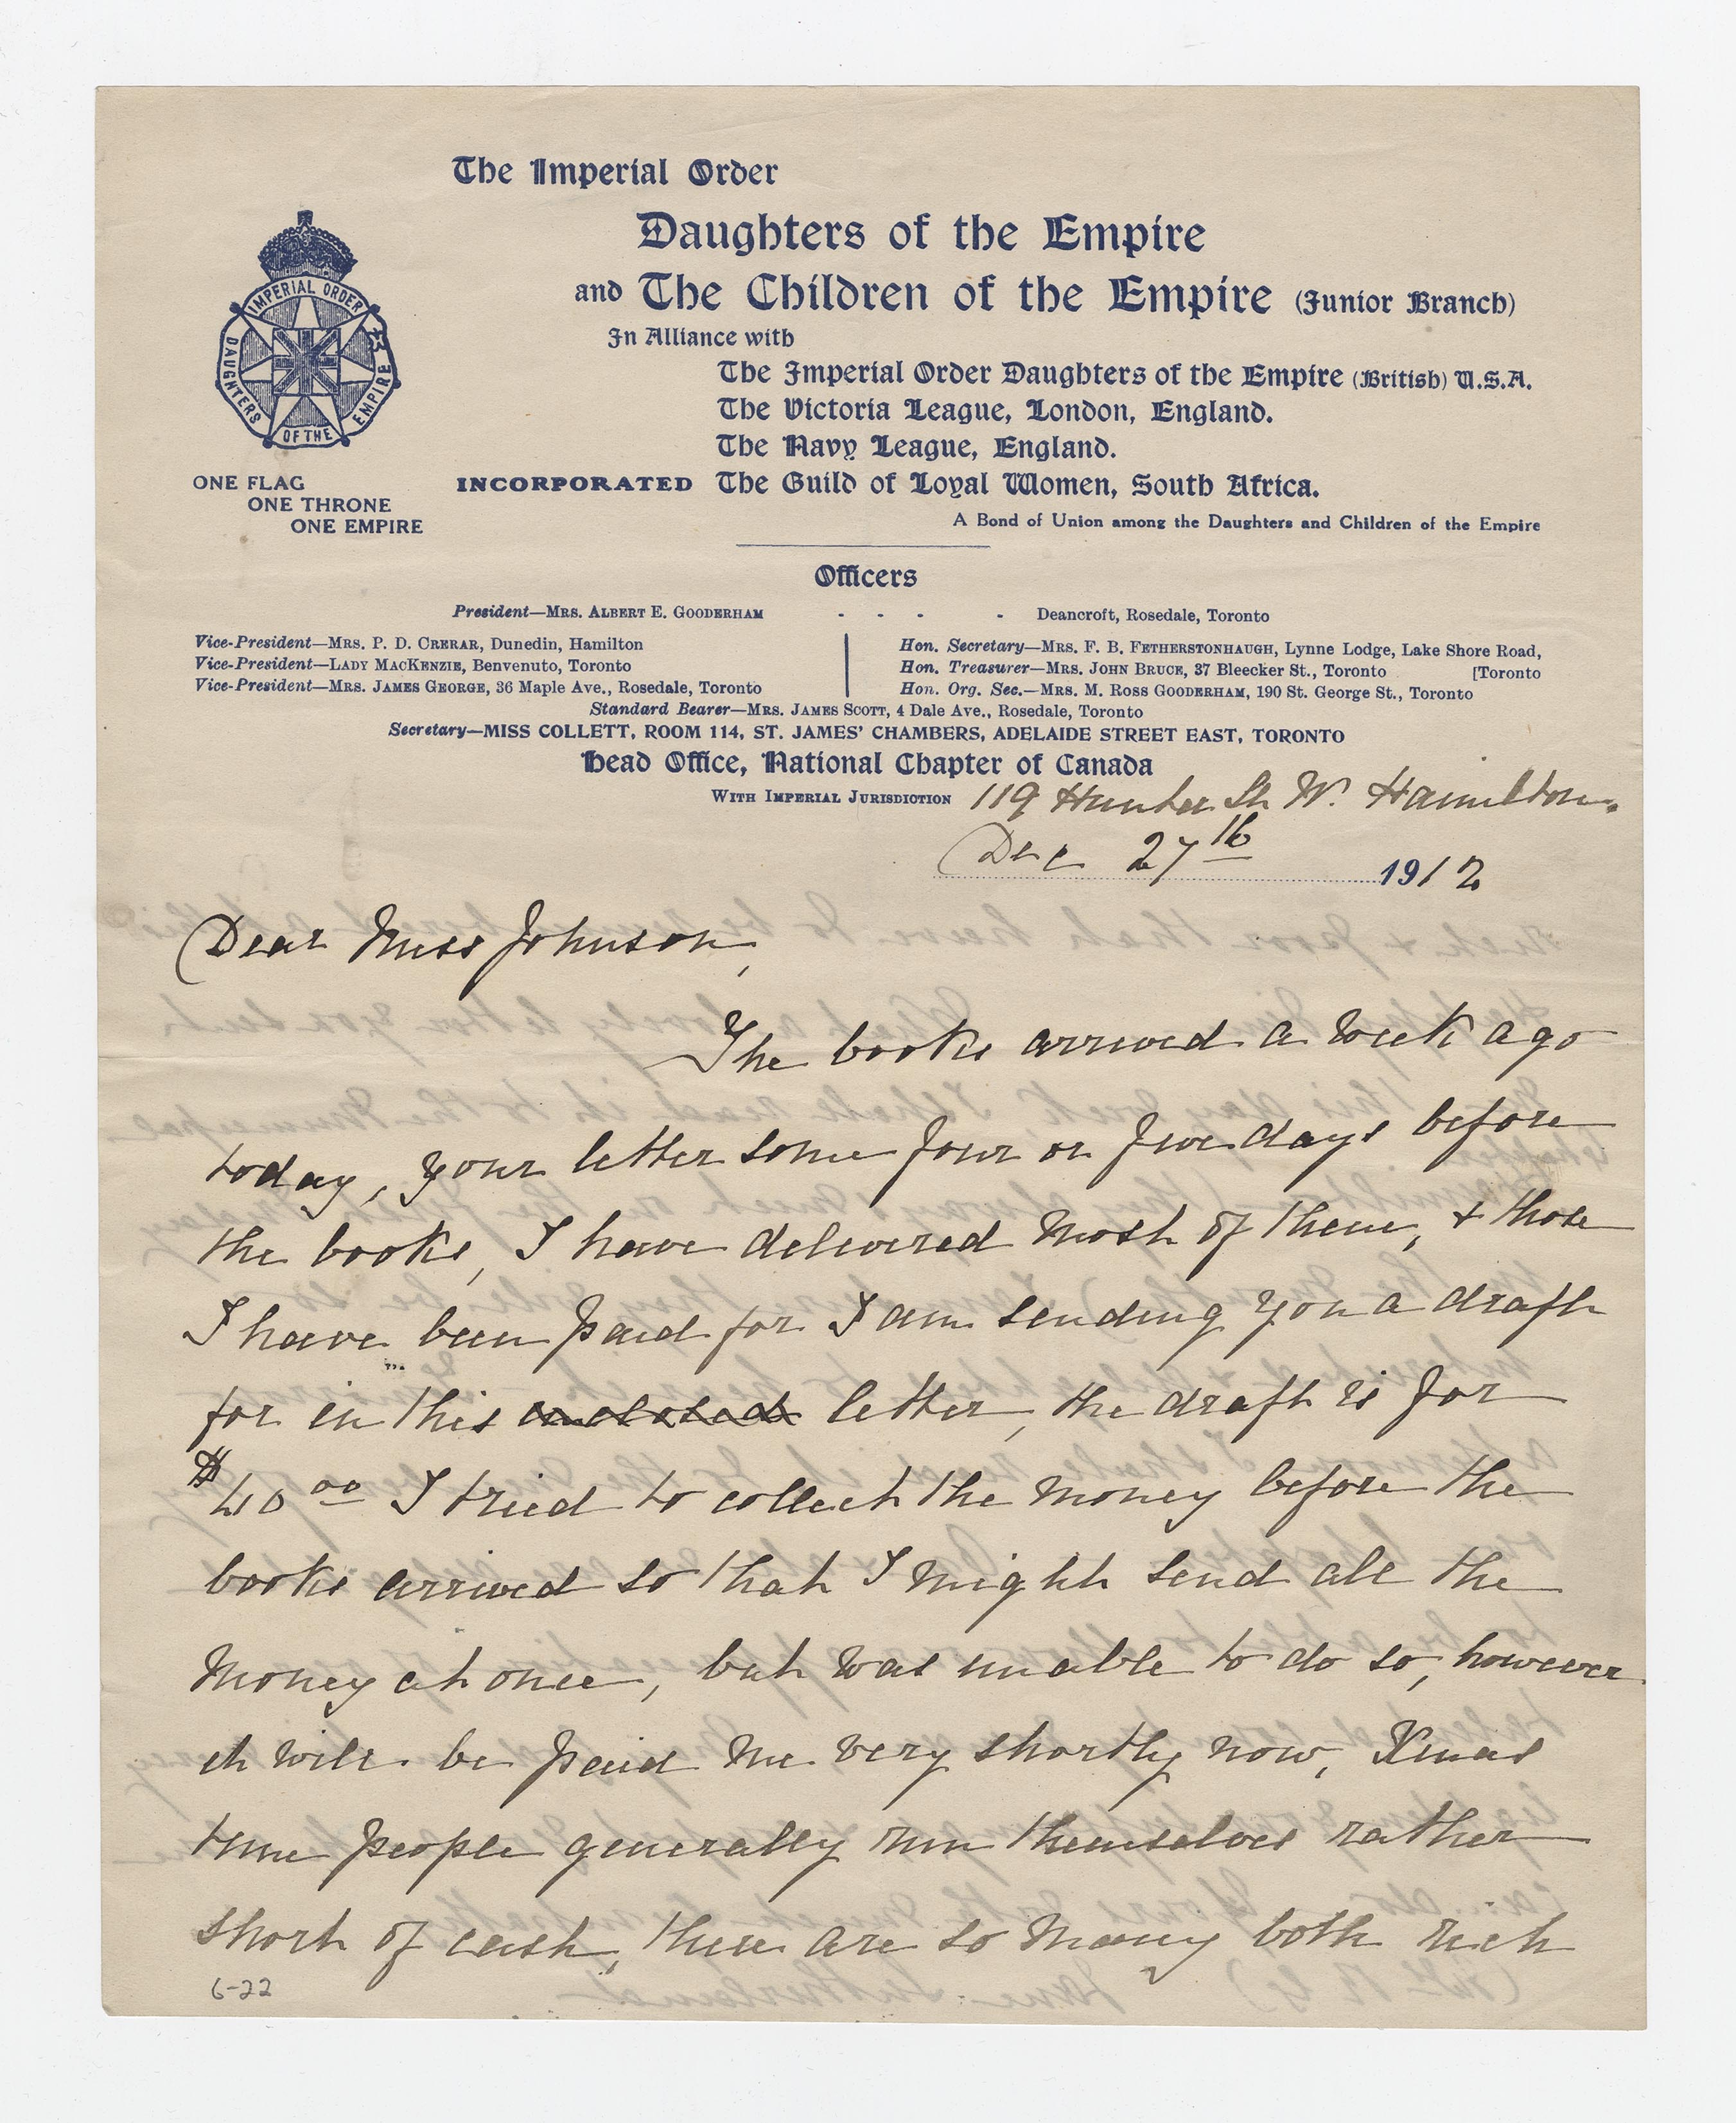 The Imperial Order
Daughters of the Empire
and The Children of the Empire (Junior Branch)
In Alliance with
The Imperial Order Daughters of the Empire (British) U.S.A.
The Victoria League, London, England.
The Navy League, England.
INCORPORATED The Guild of Loyal Women, South Africa.
A Bond of Union among the Daughters and Children of the Empire
IMPERIAL ORDER
DAUGHTERS
OF THE
EMPIRE
ONE FLAG
ONE THRONE
ONE EMPIRE
Officers
President—MRS. ALBERT E. GOODERHAM - - - - Deancroft, Rosedale, Toronto
Vice-President—MRS. P. D. CRERAR, Dunedin, Hamilton
Vice-President—LADY MACKENZIE, Benvenuto, Toronto
Vice-President—MRS. JAMES GEORGE, 36 Maple Ave., Rosedale, Toronto
Hon. Secretary—MRS. F. B. FETHERSTONHAUGH, Lynne Lodge, Lake Shore Road,
Hon. Treasurer—MRS. JOHN BRUCE, 37 Bleecker St., Toronto [Toronto
Hon. Org. Sec.—MRS. M. ROSS GOODERHAM, 190 St. George St., Toronto
Standard Bearer—MRS. JAMES SCOTT, 4 Dale Ave., Rosedale, Toronto
Secretary—MISS COLLETT, ROOM 114, ST. JAMES' CHAMBERS, ADELAIDE STREET EAST, TORONTO
Head Office, National Chapter of Canada
WITH IMPERIAL JURISDICTION 119 Hunter St W. Hamilton.
Dec 27th 1912
Dear Miss Johnson,
The books arrived a week ago
today, your letter some four or five days before
the books, I have delivered most of them, & those
I have been paid for I am sending you a draft
for in this enclosed letter, the draft is for
$40 00 I tried to collect the money before the
books arrived so that I might send all the
money at once, but was unable to do so, however
it will be paid me very shortly now, Xmas
time people generally run themselves rather
short of cash, there are so many both rich
6-22